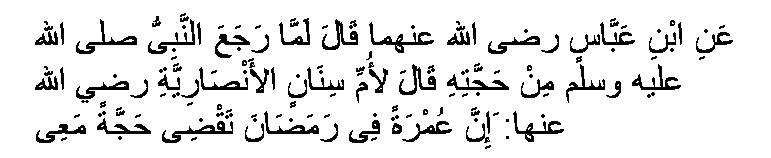 عَنِ ابْنِ عَبَّاسٍ رضى الله عنهما قَالَ لَمَّا رَجَعَ النَّبِىُّ صلى الله
عليه وسلم مِنْ حَجَّتِهِ قَالَ لأُمِّ سِنَانٍ الأَنْصَارِيَّةِ رضي الله
عنها: َإِنَّ عُمْرَةً فِى رَمَضَانَ تَقْضِى حَجَّةً مَعِى